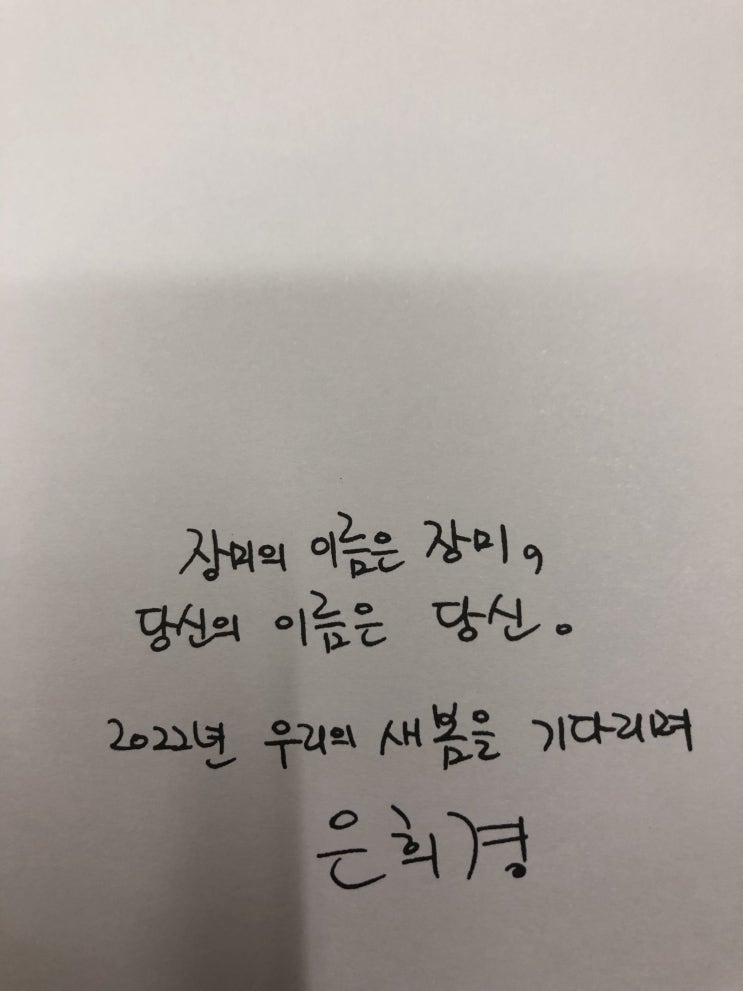 장미의 이름은 장미,
당신의 이름은 당신.
2022년 우리의 새봄을 기다리며
은희경